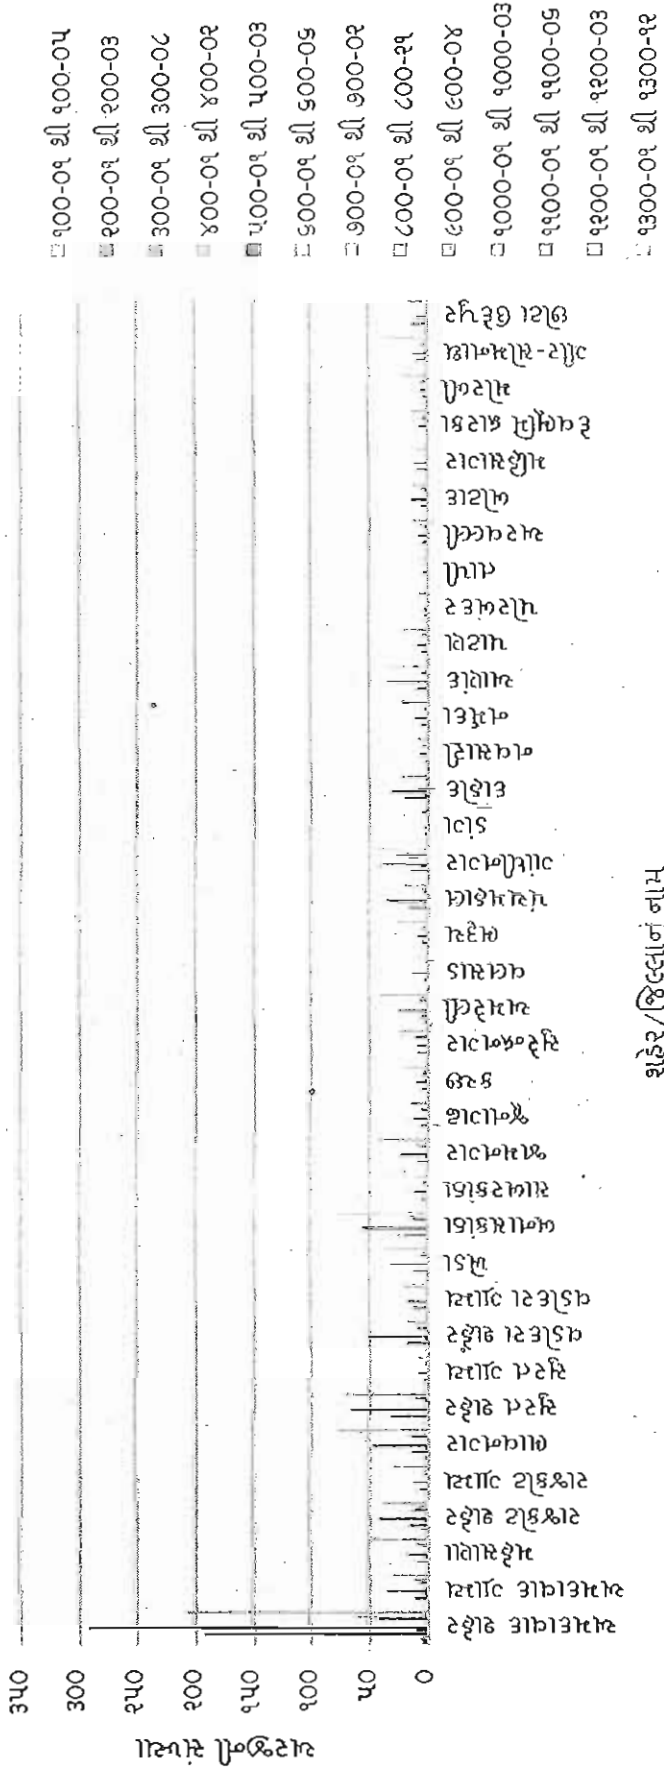 અરજીની સંખ્યા
૩૫૦
૩૦૦
૨૫૦
૨૦૦
૧૫૦
૧૦૦
૫૦
૦
અમદાવાદ શહેર
અમદાવાદ ગ્રામ્ય
મહેસાણા
રાજકોટ શહેર
રાજકોટ ગ્રામ્ય
ભાવનગર
સુરત શહેર
સુરત ગ્રામ્ય
વડોદરા શહેર
વડોદરા ગ્રામ્ય
ખેડા
બનાસકાંઠા
સાબરકાંઠા
જામનગર
જૂનાગઢ
કચ્છ
સુરેન્દ્રનગર
અમરેલી
વલસાડ
ભરૂચ
પંચમહાલ
ગાંધીનગર
ડાંગ
દાહોદ
નવસારી
નર્મદા
આણંદ
પાટણ
પોરબંદર
તાપી
અરવલ્લી
બોટાદ
મહિસાગર
દેવભૂમિ દ્વારકા
મોરબી
ગીર-સોમનાથ
છોટા ઉદેપુર
શહેર/જિલ્લાનું નામ
૧૦૦-૦૧ થી ૧૦૦-૦૫
૨૦૦-૦૧ થી ૨૦૦-૦૩
૩૦૦-૦૧ થી ૩૦૦-૦૮
૪૦૦-૦૧ થી ૪૦૦-૦૨
૫૦૦-૦૧ થી ૫૦૦-૦૩
૬૦૦-૦૧ થી ૬૦૦-૦૬
૭૦૦-૦૧ થી ૭૦૦-૦૨
૮૦૦-૦૧ થી ૮૦૦-૧૨
૯૦૦-૦૧ થી ૯૦૦-૦૪
૧૦૦૦-૦૧ થી ૧૦૦૦-૦૩
૧૧૦૦-૦૧ થી ૧૧૦૦-૦૬
૧૨૦૦-૦૧ થી ૧૨૦૦-૦૩
૧૩૦૦-૦૧ થી ૧૩૦૦-૧૨